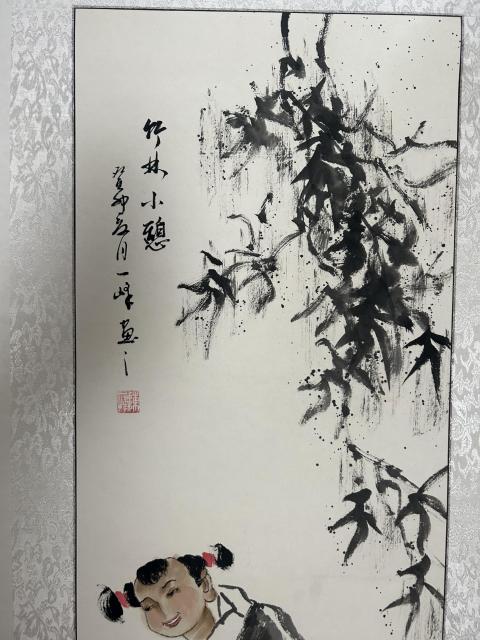 竹林小憩
癸卯六月一峰画之